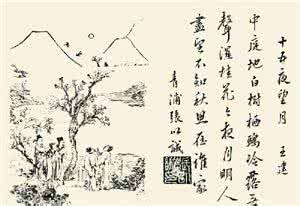 十五夜望月 王建
中庭地白樹栖鴉冷露无
聲濕桂花今夜月明人
盡望不知秋思在誰家
青浦張以誠